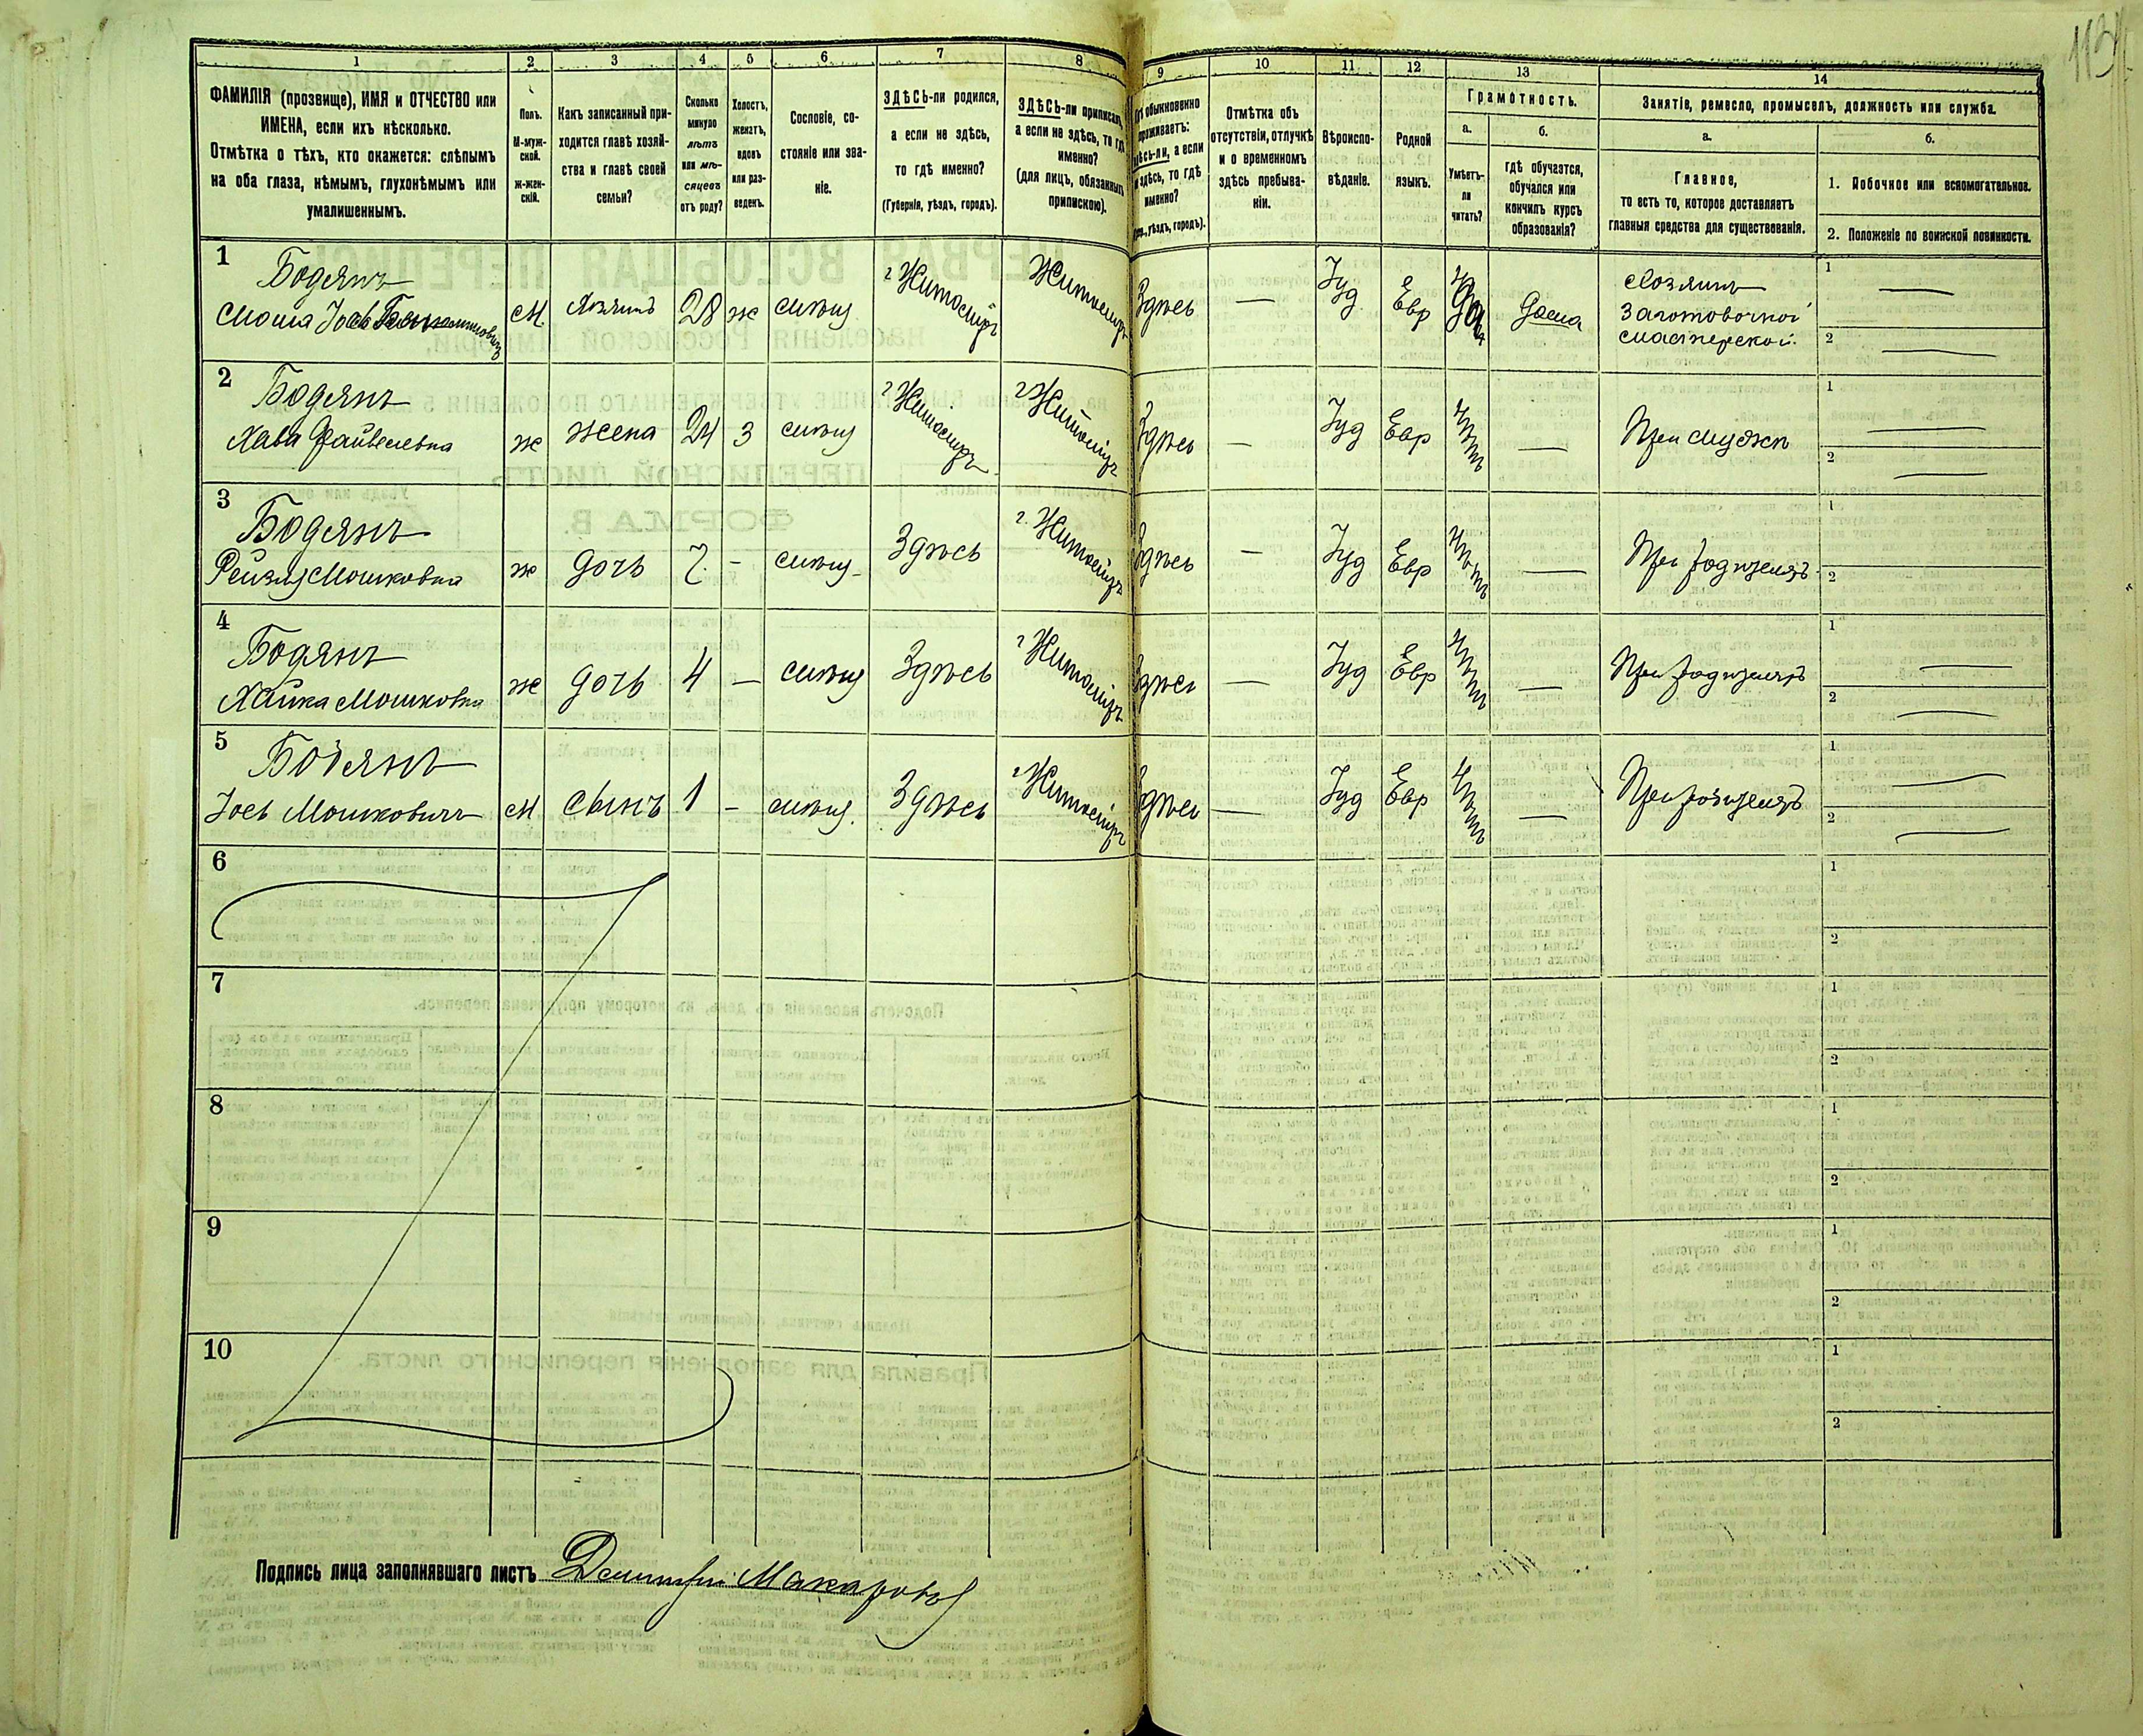 113
1 2 3 4 5 6 7 8 9 10 11 12 13 14
ФАМИЛІЯ (прозвище), ИМЯ и ОТЧЕСТВО или
ИМЕНА, если ихъ нѣсколько.
Отмѣтка о тѣхъ, кто окажется: слѣпымъ
на оба глаза, нѣмымъ, глухонѣмымъ или
умалишеннымъ.
Полъ.
М-муж-
ской.
ж-жен-
скій.
Какъ записанный при-
ходится главѣ хозяй-
ства и главѣ своей
семьи?
Сколько
минуло
лѣтъ
или мѣ-
сяцевъ
отъ роду?
Холостъ,
женатъ,
вдовъ
или раз-
веденъ.
Сословіе, со-
стояніе или зва-
ніе.
ЗДѢСЬ-ли родился,
а если не здѣсь,
то гдѣ именно?
(Губернія, уѣздъ, городъ).
ЗДѢСЬ-ли приписанъ,
а если не здѣсь, то гдѣ
именно?
(для лицъ, обязанныхъ
припискою).
Гдѣ обыкновенно
проживаетъ:
здѣсь-ли, а если
не здѣсь, то гдѣ
именно?
(Губ., уѣздъ, городъ).
Отмѣтка объ
отсутствіи, отлучкѣ
и о временномъ
здѣсь пребыва-
ніи.
Вѣроиспо-
вѣданіе.
Родной
языкъ.
Грамотность.
а.
Умѣетъ-
ли
читать?
б.
гдѣ обучается,
обучался или
кончилъ курсъ
образованія?
Занятіе, ремесло, промыселъ, должность или служба.
а.
Главное,
то есть то, которое доставляетъ
главныя средства для существованія.
б.
1. Побочное или вспомогательное.
2. Положеніе по воинской повинности.
1
Бодянъ
Мошка Іось
м хозяинъ 28 ж мѣщ г Житоміръ Житоміръ Здѣсь — Іуд Евр да дома
Хозяинъ
Заготовочной
мастерской.
1 —
2 —
2
Бодянъ
Хава Файвелевна
ж жена 24 з мѣщ г Житоміръ г Житоміръ Здѣсь — Іуд Евр нѣтъ — При мужѣ
1 —
2 —
3
Бодянъ
Рейзля Мошковна
ж дочь 7 - мѣщ. Здѣсь г. Житоміръ Здѣсь — Іуд Евр нѣтъ — При родителяхъ
1
2
4
Бодянъ
Хайка Мошковна
ж дочь 4 — мѣщ Здѣсь г Житоміръ Здѣсь — Іуд Евр нѣтъ — При родителяхъ
1 —
2 —
5
Бодянъ
Іось Мошковичъ
м сынъ 1 - мѣщ. Здѣсь г Житоміръ Здѣсь — Іуд Евр нѣтъ — При родителяхъ
1 —
2 —
6
1
2
7
1
2
8
1
2
9
1
2
10
1
2
Подпись лица заполнявшаго листъ Дмитрій Макаровъ